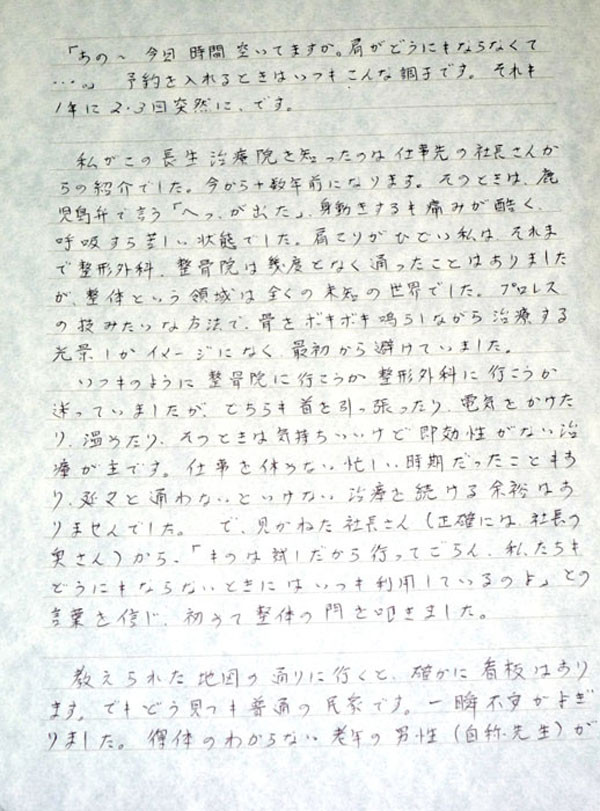 「あの～ 今日 時間 空いてますか。肩がどうにもならなくて
…。」 予約を入れるときはいつもこんな調子です。それも
1年に2・3回突然に、です。
私がこの長生治療院を知ったのは仕事先の社長さんか
らの紹介でした。今から十数年前になります。そのときは、鹿
児島弁で言う「へっ、が出た」、身動きするも痛みが酷く、
呼吸すら苦しい状態でした。肩こりがひどい私は、それま
で整形外科、整骨院は幾度となく通ったことはありました
が、整体という領域は全くの未知の世界でした。プロレス
の技みたいな方法で、骨をボキボキ鳴らしながら治療する
光景しかイメージになく、最初から避けていました。
いつものように整骨院に行こうか整形外科に行こうか
迷っていましたが、どちらも首を引っ張ったり、電気をかけた
り、温めたり、そのときは気持ちいいけど即効性がない治
療が主です。仕事を休めない忙しい時期だったこともあ
り、延々と通わないといけない治療を続ける余裕はあ
りませんでした。 で、見かねた社長さん（正確には、社長の
奥さん）から、「ものは試しだから行ってごらん、私たちも
どうにもならないときにはいつも利用しているのよ」との
言葉を信じ、初めて整体の門を叩きました。
教えられた地図の通りに行くと、確かに看板はあり
ます。でもどう見つも普通の民家です。一瞬不安がよぎ
りました。得体のわからない老年の男性（自称先生）が